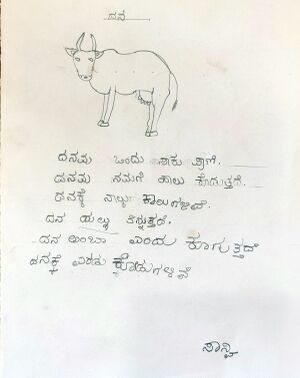 ದನ
ದನವು ಒಂದು ಸಾಕು ಪ್ರಾಣಿ.
ದನವು ನಮಗೆ ಹಾಲು ಕೊಡುತ್ತದೆ.
ದನಕ್ಕೆ ನಾಲ್ಕು ಕಾಲುಗಳಿವೆ.
ದನ ಹುಲ್ಲು ತಿನ್ನುತ್ತದೆ.
ದನ ಅಂಬಾ ಎಂದು ಕೂಗುತ್ತದೆ
ದನಕ್ಕೆ ಎರಡು ಕೋಡುಗಳಿವೆ